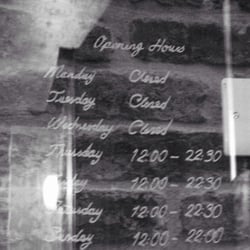 Opening Hours
Monday Closed
Tuesday Closed
Wednesday Closed
Thursday 12:00 - 22:30
12:00 - 22:30
Saturday 12:00 - 22:30
Sunday 12:00 - 22:00